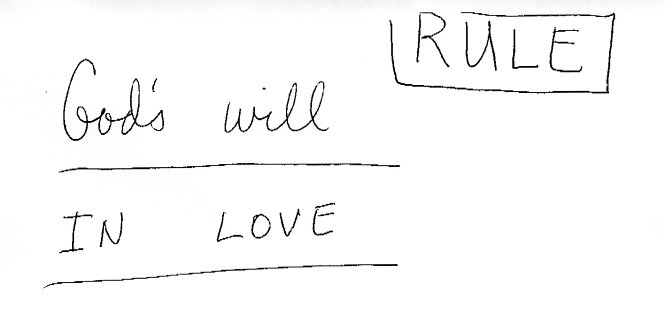 RULE
God's will
IN LOVE